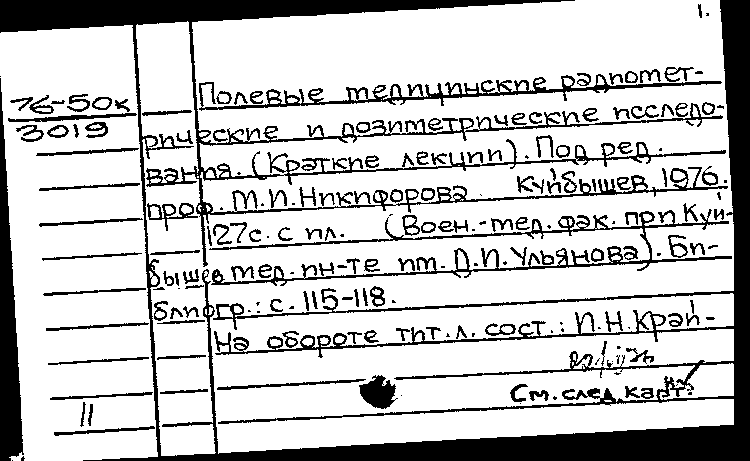 1.
76-50к
3019
Полевые медицинские радиомет-
рические и дозиметрические исследо-
вания. (Краткие лекции). Под ред.
проф. М.И. Никифорова. Куйбышев, 1976.
127с. с ил. (Воен.-мед. фак. при Куй-
бышев мед. ин-те им. Д.И. Ульянова). Би-
блиогр.: с. 115-118.
На обороте тит. л. сост.: И.Н. Край-
См. след. карт.
11